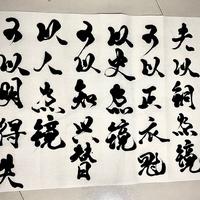 夫以銅为鏡
可以正衣冠
以史为鏡
可以知兴替
以人为鏡
可以明得失